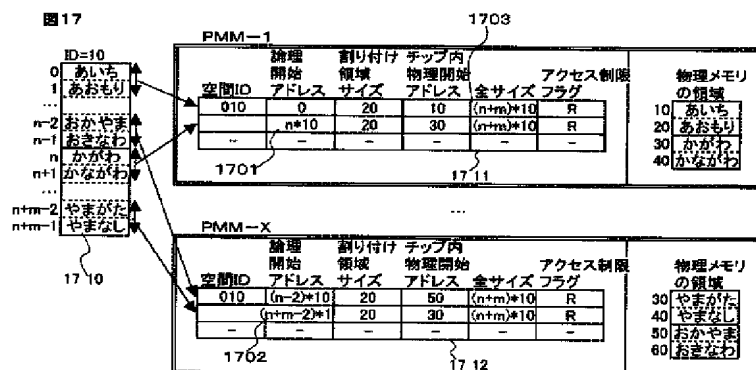 図17
ID=10
0 あいち
1 あおもり
...
n-2 おかやま
n-1 おきなわ
n かがわ
n+1 かながわ
...
n+m-2 やまがた
n+m-1 やまなし
17 10
PMM-1
1703
空間ID 論理開始アドレス 割り付け領域サイズ チップ内物理開始アドレス 全サイズ アクセス制限フラグ
010 0 20 10 (n+m)*10 R
n*10 20 30 (n+m)*10 R
- - - - - -
1701
17 11
物理メモリの領域
10 あいち
20 あおもり
30 かがわ
40 かながわ
...
PMM-X
空間ID 論理開始アドレス 割り付け領域サイズ チップ内物理開始アドレス 全サイズ アクセス制限フラグ
010 (n-2)*10 20 50 (n+m)*10 R
(n+m-2)*1 20 30 (n+m)*10 R
- - - - - -
1702
17 12
物理メモリの領域
30 やまがた
40 やまなし
50 おかやま
60 おきなわ